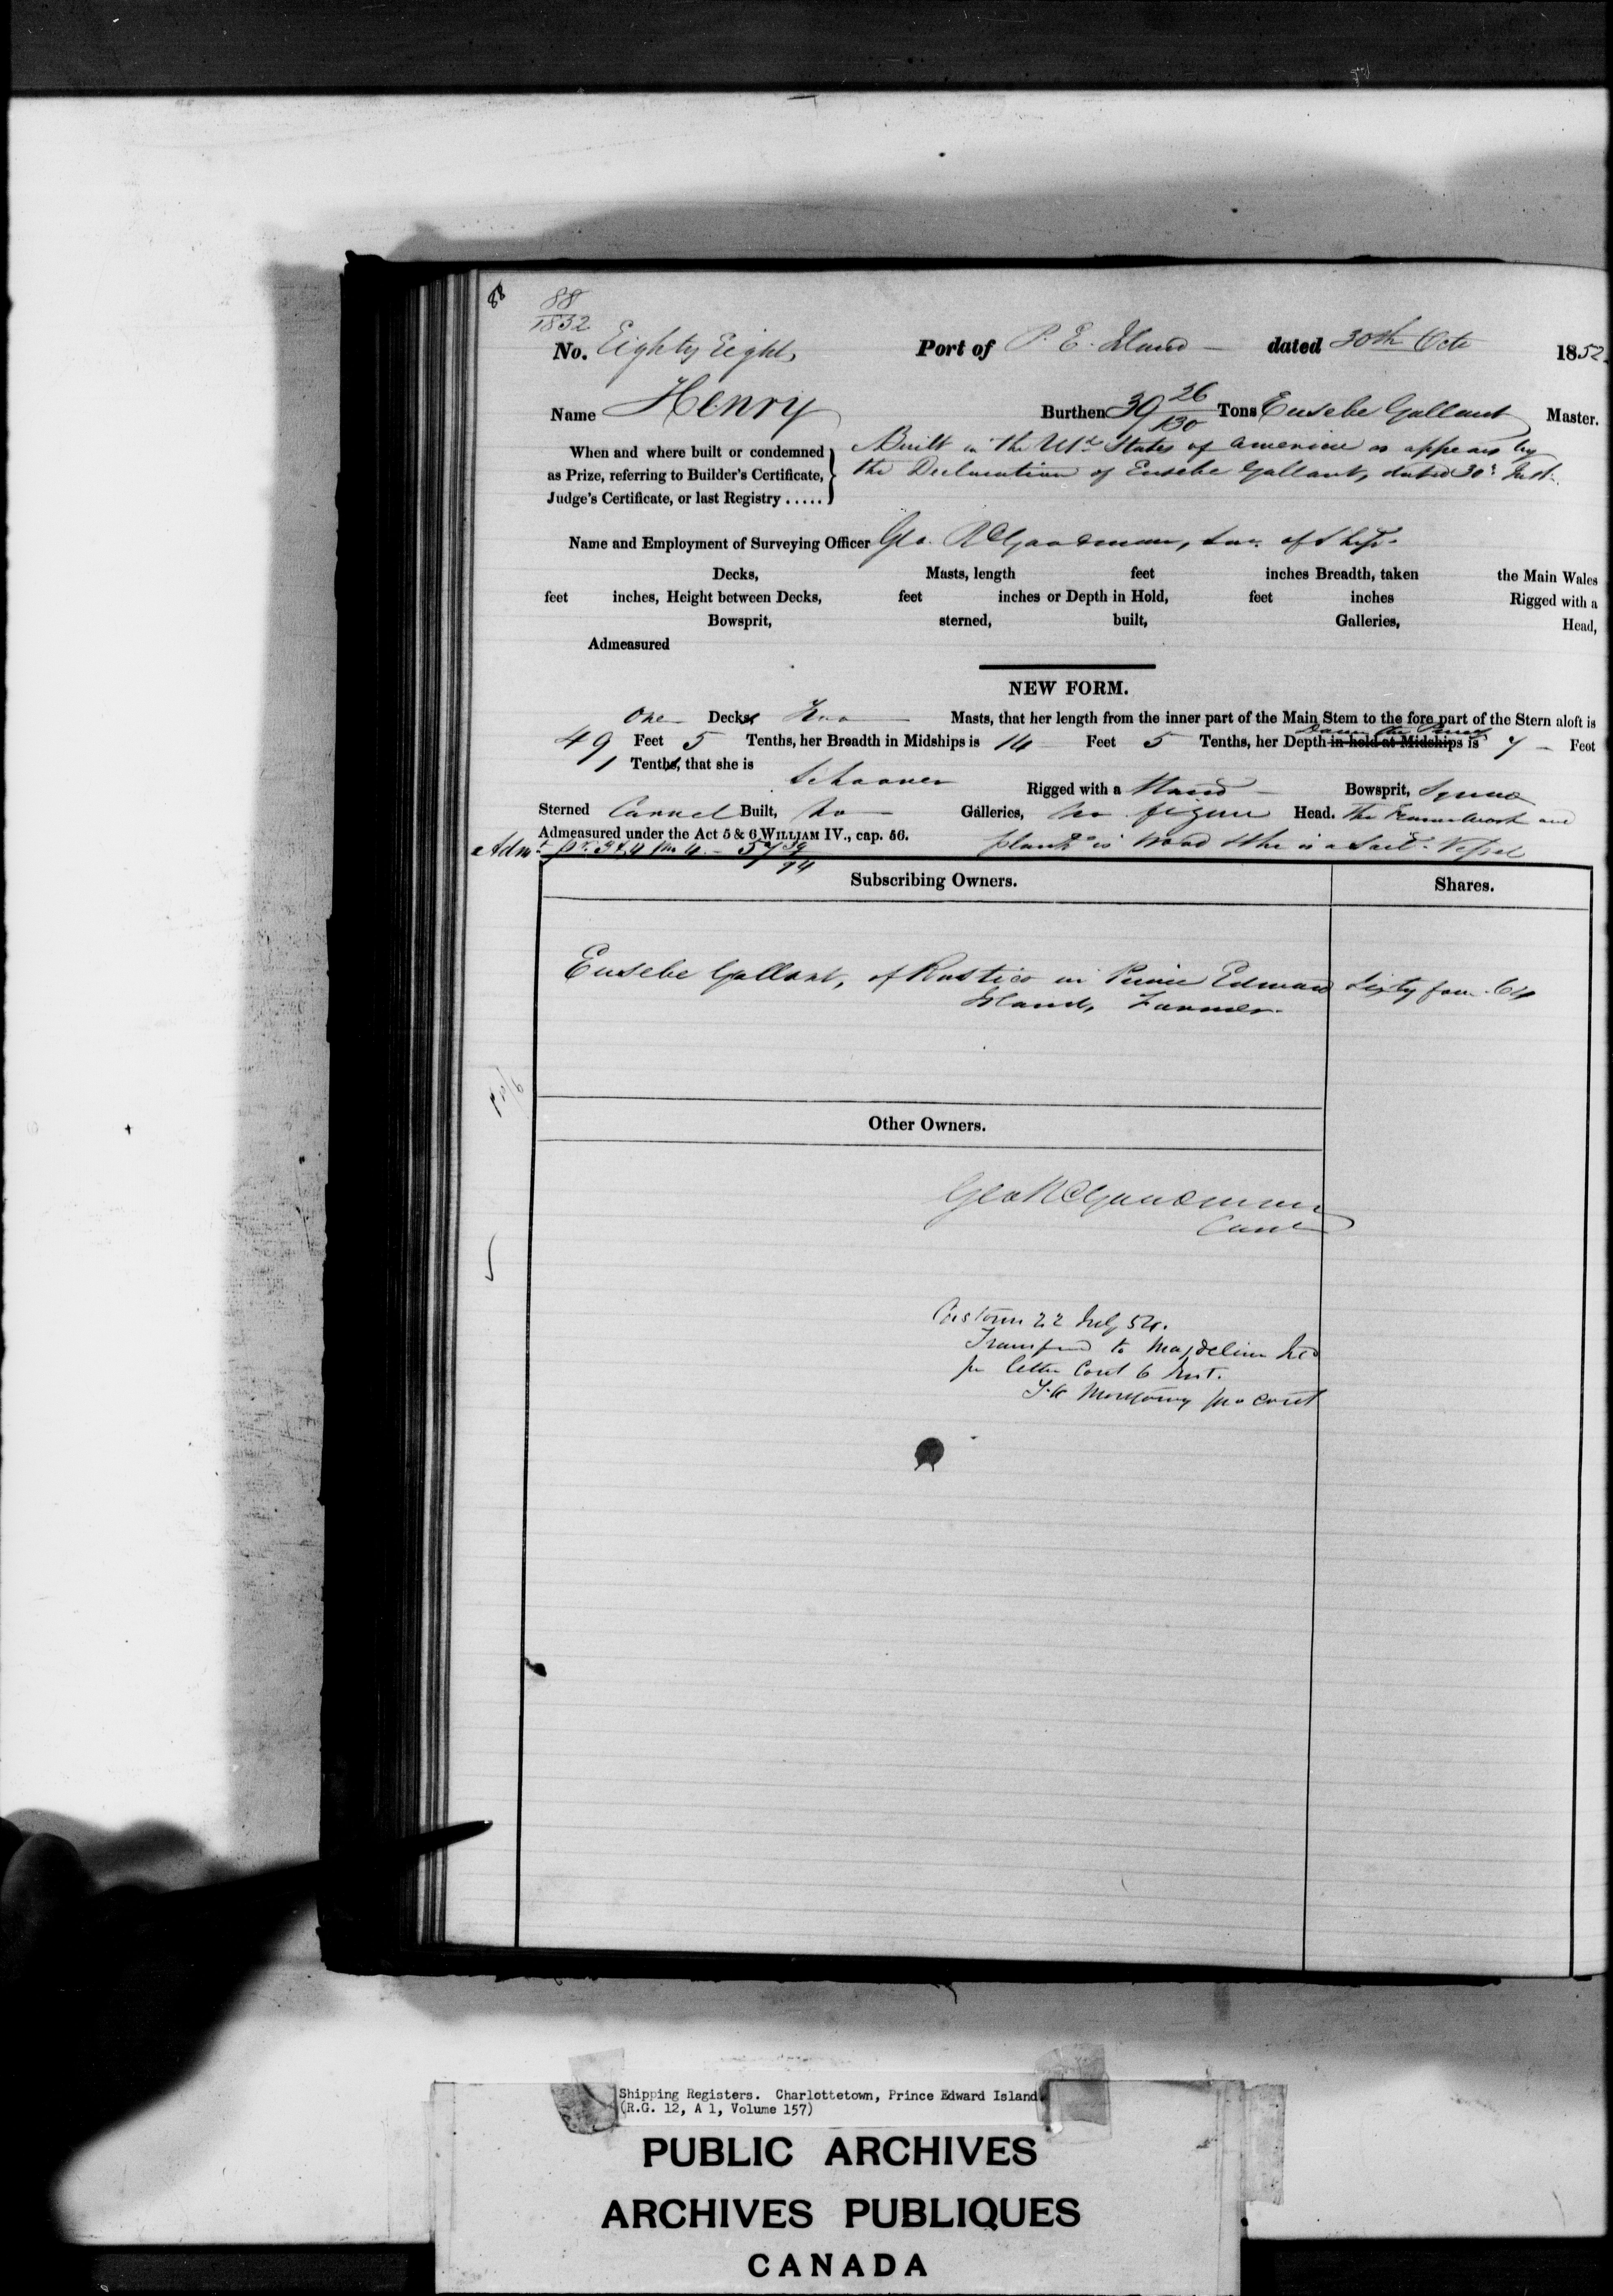 88
88
1852
No. Eighty Eight, Port of P. E. Island — dated 30th Octr 1852
Name Henry Burthen 39 26/130 Tons Eusebe Gallant Master.
When and where built or condemned as Prize, referring to Builder's Certificate, Judge's Certificate, or last Registry .....
Built in the Utd States of America as appears by
the Declaration of Eusebe Gallant, dated 30th Inst.
Name and Employment of Surveying Officer Geo. R Goodman, Sur. of Ship.
Decks, Masts, length feet inches Breadth, taken the Main Wales
feet inches, Height between Decks, feet inches or Depth in Hold, feet inches Rigged with a
Bowsprit, sterned, built, Galleries, Head,
Admeasured
NEW FORM.
One Decks Two — Masts, that her length from the inner part of the Main Stem to the fore part of the Stern aloft is
49 Feet 5 Tenths, her Breadth in Midships is 14 Feet 5 Tenths, her Depth in hold at Midships is 7 — Feet
Tenths, that she is Schooner Rigged with a Stand — Bowsprit, Square
Sterned Carvel Built, No — Galleries, no figure Head. The Framework and
Admeasured under the Act 5 & 6 WILLIAM IV., cap. 56. plank is Wood & she is a Sail. Vessel
Subscribing Owners. Shares.
Eusebe Gallant, of Rustico in Prince Edward Sixty four 64
Island, Farmer.
Other Owners.
Geo R Goodman
Cont
22 July 54.
Transferd to Magdelin Isd
pr letter Cont 6 Inst.
Montgomery pro Cont
Shipping Registers. Charlottetown, Prince Edward Island
(R.G. 12, A 1, Volume 157)
PUBLIC ARCHIVES
ARCHIVES PUBLIQUES
CANADA